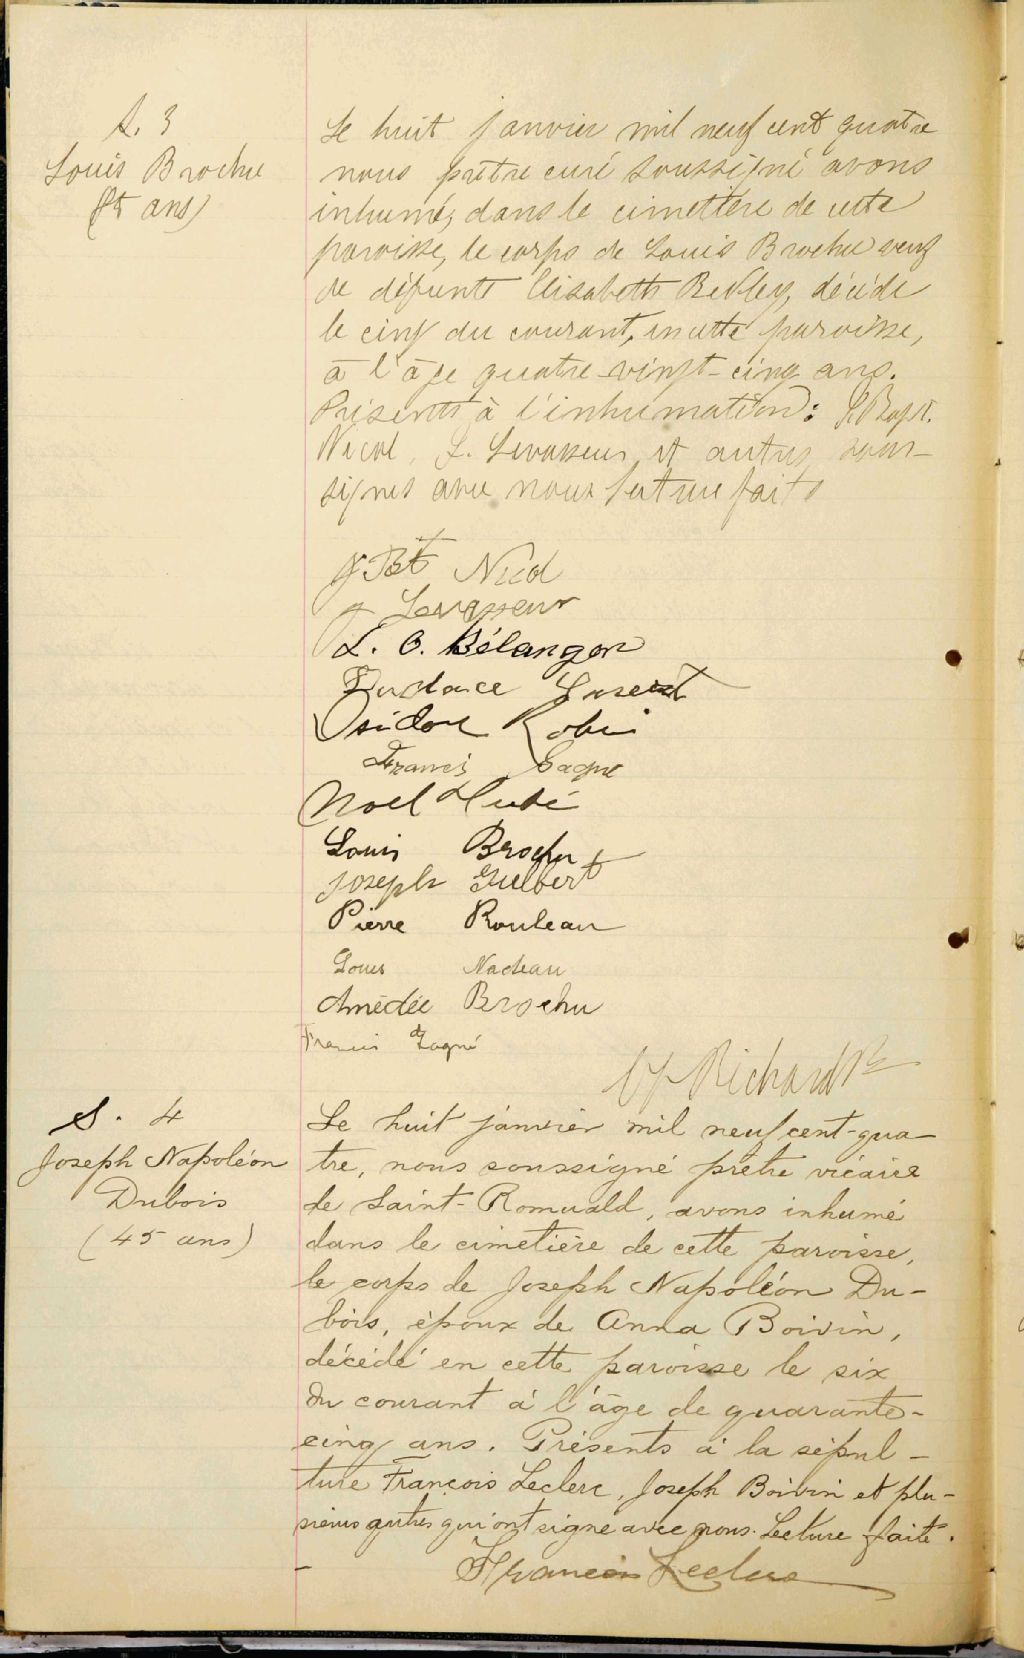 S. 3
Louis Brochu
(85 ans)
Le huit janvier mil neuf cent quatre
nous prêtre curé soussigné avons
inhumé, dans le cimetière de cette
paroisse, le corps de Louis Brochu veuf
de défunte Elisabeth décédé
le cinq du courant, en cette paroisse,
à l'âge quatre-vingt-cinq ans.
Présents à l'inhumation: J. Bapt.
Nicol, J. Levasseur et autres sous-
signés avec nous lecture faite
J Bt Nicol
J Levasseur
L. O. Bélanger
Isidore
Francis Gagné
Noel Hubé
Louis Brochu
Joseph Guilbert
Pierre Rouleau
Louis Nadeau
Amédée Brochu
Francis Gagné
Richard Ptre
S. 4
Joseph Napoléon
Dubois
(45 ans)
Le huit janvier mil neuf cent-qua-
tre, nous soussigné prêtre vicaire
de Saint-Romuald, avons inhumé
dans le cimetière de cette paroisse,
le corps de Joseph Napoléon Du-
bois, époux de Anna Boivin,
décédé en cette paroisse le six
du courant à l'âge de quarante-
cinq ans. Présents à la sépul-
ture François Leclerc, Joseph Boivin et plu-
sieurs autres qui ont signé avec nous. Lecture faite.
Francois Leclerc